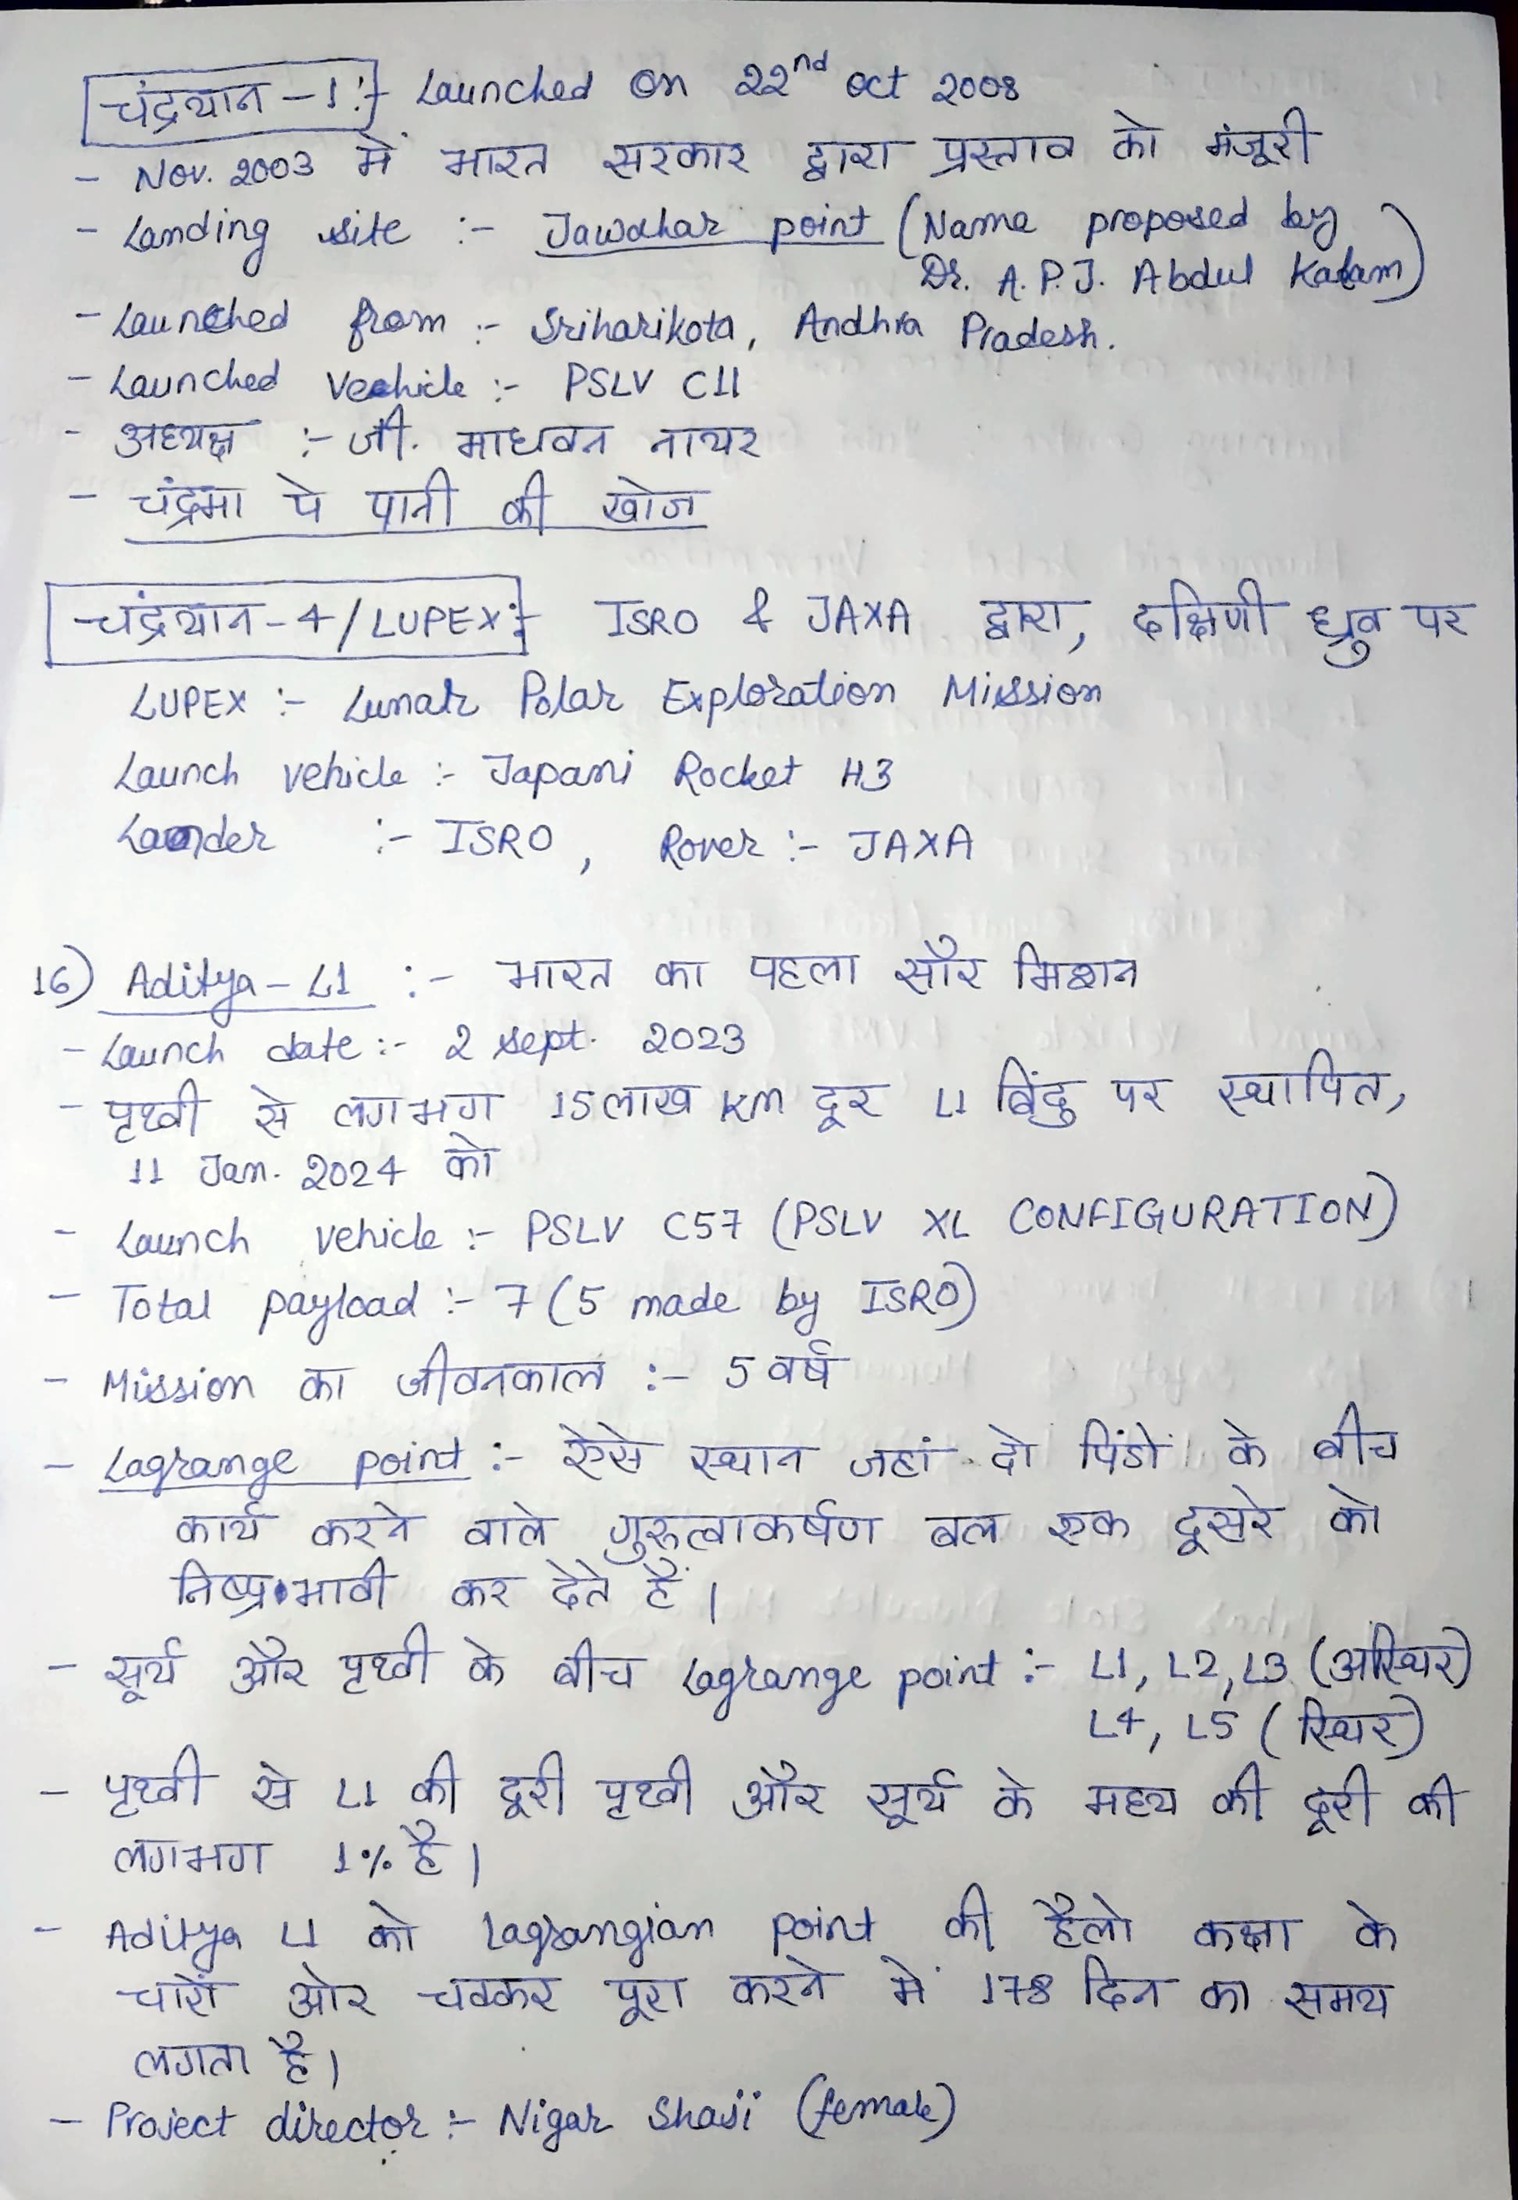 चंद्रयान-1 :- Launched on 22nd oct 2008
- Nov. 2003 में भारत सरकार द्वारा प्रस्ताव को मंजूरी
- Landing site :- Jawahar point (Name proposed by
Dr. A.P.J. Abdul Kalam)
- Launched from :- Sriharikota, Andhra Pradesh.
- Launched Vechicle :- PSLV C11
- अध्यक्ष :- जी. माधवन नायर
- चंद्रमा पे पानी की खोज
चंद्रयान-4/LUPEX :- ISRO & JAXA द्वारा, दक्षिणी ध्रुव पर
LUPEX :- Lunar Polar Exploration Mission
Launch vehicle :- Japani Rocket H3
Lander :- ISRO, Rover :- JAXA
16) Aditya-L1 :- भारत का पहला सौर मिशन
- Launch date :- 2 sept. 2023
- पृथ्वी से लगभग 15 लाख km दूर L1 बिंदु पर स्थापित,
11 Jan. 2024 को
- Launch vehicle :- PSLV C57 (PSLV XL CONFIGURATION)
- Total payload :- 7 (5 made by ISRO)
- Mission का जीवनकाल :- 5 वर्ष
- Lagrange point :- ऐसे स्थान जहां दो पिंडों के बीच
कार्य करने वाले गुरुत्वाकर्षण बल एक दूसरे को
निष्प्रभावी कर देते हैं।
- सूर्य और पृथ्वी के बीच Lagrange point :- L1, L2, L3 (अस्थिर)
L4, L5 (स्थिर)
- पृथ्वी से L1 की दूरी पृथ्वी और सूर्य के मध्य की दूरी की
लगभग 1% है।
- Aditya L1 को Lagrangian point की हैलो कक्षा के
चारों ओर चक्कर पूरा करने में 178 दिन का समय
लगता है।
- Project director :- Nigar Shaji (female)